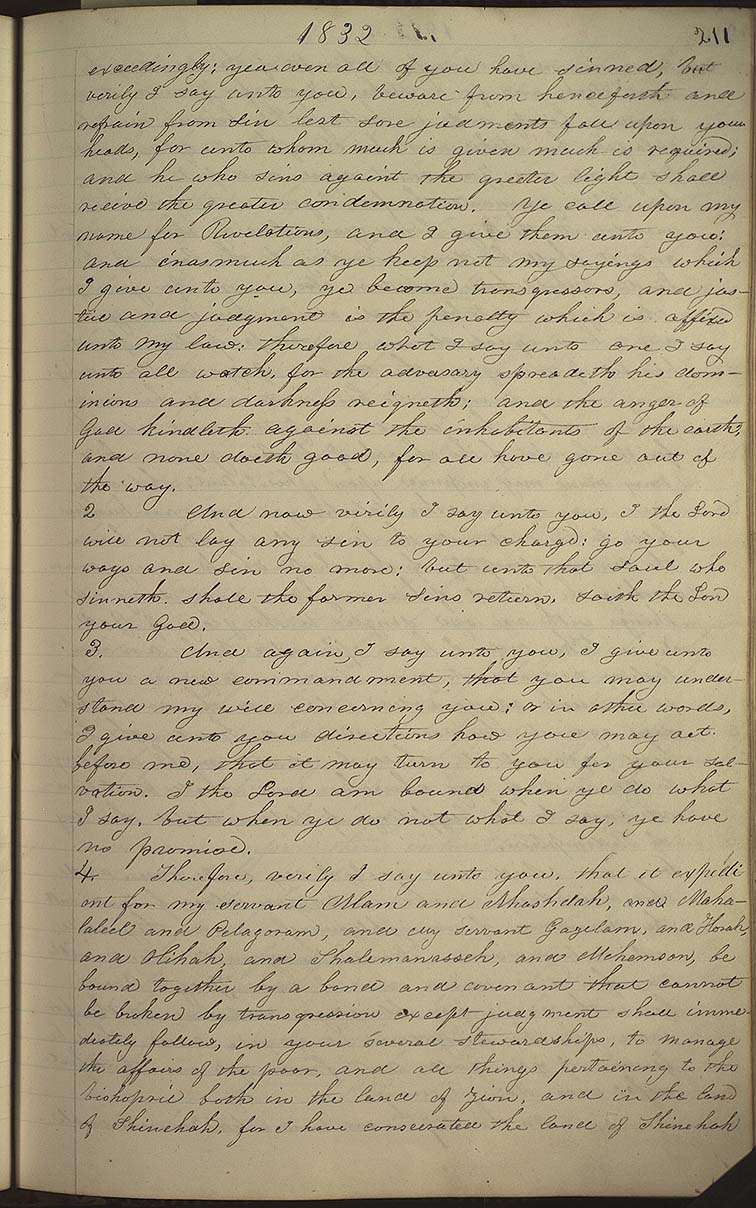 1832 211
exceedingly; yea even all of you have sinned, but
verily I say unto you, beware from henceforth and
refrain from sin lest sore judments fall upon your
heads, for unto whom much is given much is required;
and he who sins againt the greeter light shall
receive the greater condemnation. Ye call upon my
name for Revelations, and I give them unto you:
and inasmuch as ye keep not my sayings which
I give unto you, ye become transgressors, and jus-
tice and judgment is the penalty which is affixed
unto my law: therefore what I say unto one I say
unto all watch, for the advasary spreadeth his dom-
inions and darkness reigneth; and the anger of
God kindleth against the inhabitants of the earth;
and none doeth good, for all have gone out of
the way.
2 And now virily I say unto you, I the Lord
will not lay any sin to your charge: go your
ways and sin no more: but unto that soul who
sinneth shall the former sins return, saith the Lord
your God.
3. And again, I say unto you, I give unto
you a new commandment, that you may under-
stand my will concerning you; or in other words,
I give unto you directions how you may act
before me, that it may turn to you for your sal-
vation. I the Lord am bound when ye do what
I say, but when ye do not what I say, ye have
no promise.
4. Therefore, verily I say unto you, that it expedi
ent for my servant Alam and Ahashdah, and Maha-
laleel and Pelagoram, and my servant Gazelam, and Horah,
and Olihah, and Shalemanasseh, and Mehemson, be
bound together by a bond and covenant that cannot
be broken by transgression except judgment shall imme-
diately follow, in your several stewardships, to manage
the affairs of the poor, and all things pertaining to the
bishopric both in the land of Zion, and in the land
of Shinehah, for I have consecrated the land of Shinehah